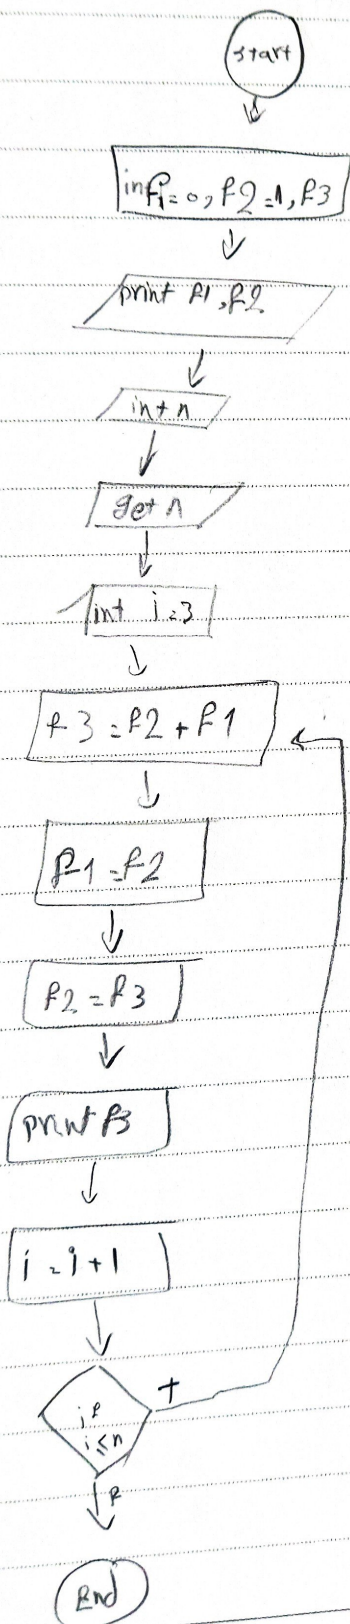 start
int f1=0, f2=1, f3
print f1, f2
int n
get n
int i=3
f3=f2+f1
f1=f2
f2=f3
print f3
i=i+1
if
i≤n
+
f
End